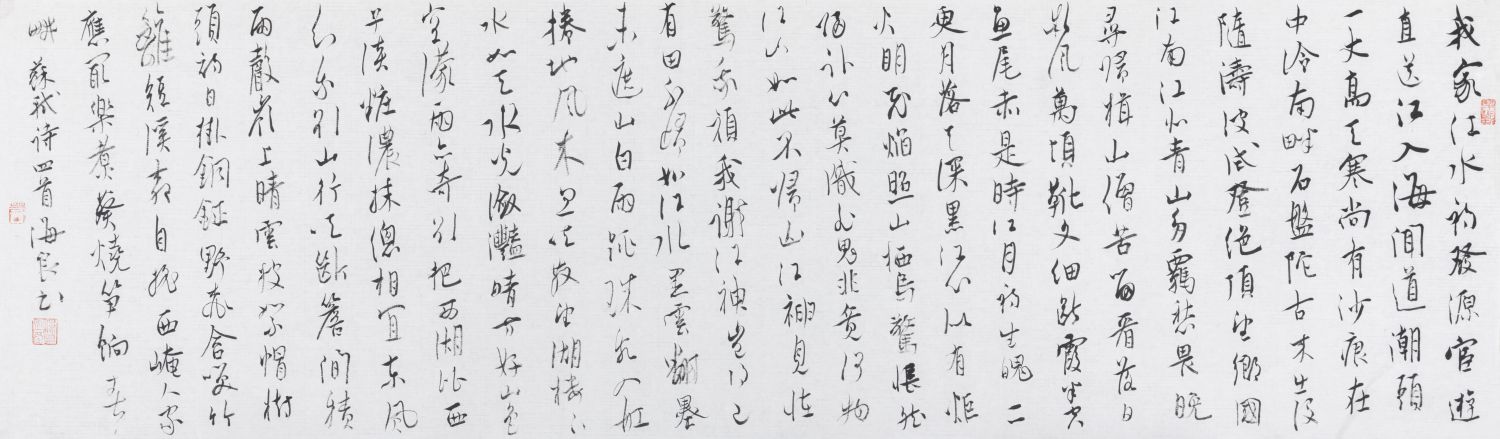 我家江水初發源宦遊
直送江入海聞道潮頭
一丈高天寒尚有沙痕在
中泠南畔石盤陀古來出没
隨濤波試登絕頂望鄉國
江南江北青山多羈愁畏晚
尋歸楫山僧苦留看落日
微風萬頃靴文細斷霞半空
魚尾赤是時江月初生魄二
更月落天深黑江心似有炬
火明飛焰照山栖鳥驚悵然
歸卧心莫識非鬼非竟何物
江山如此不歸山江神見怪
驚我頑我謝江神豈得已
有田不歸如江水黑雲翻墨
未遮山白雨跳珠亂入船
捲地風來忽吹散望湖樓下
水如天水光瀲灩晴方好山色
空濛雨亦奇欲把西湖比西
子淡粧濃抹總相宜東風
知我欲山行吹斷簷間積
雨聲嶺上晴雲披絮帽樹
頭初日掛銅鉦野桃含笑竹
籬短溪柳自摇西崦人家
應最樂煮葵燒筍餉春
畊蘇軾詩四首海良書